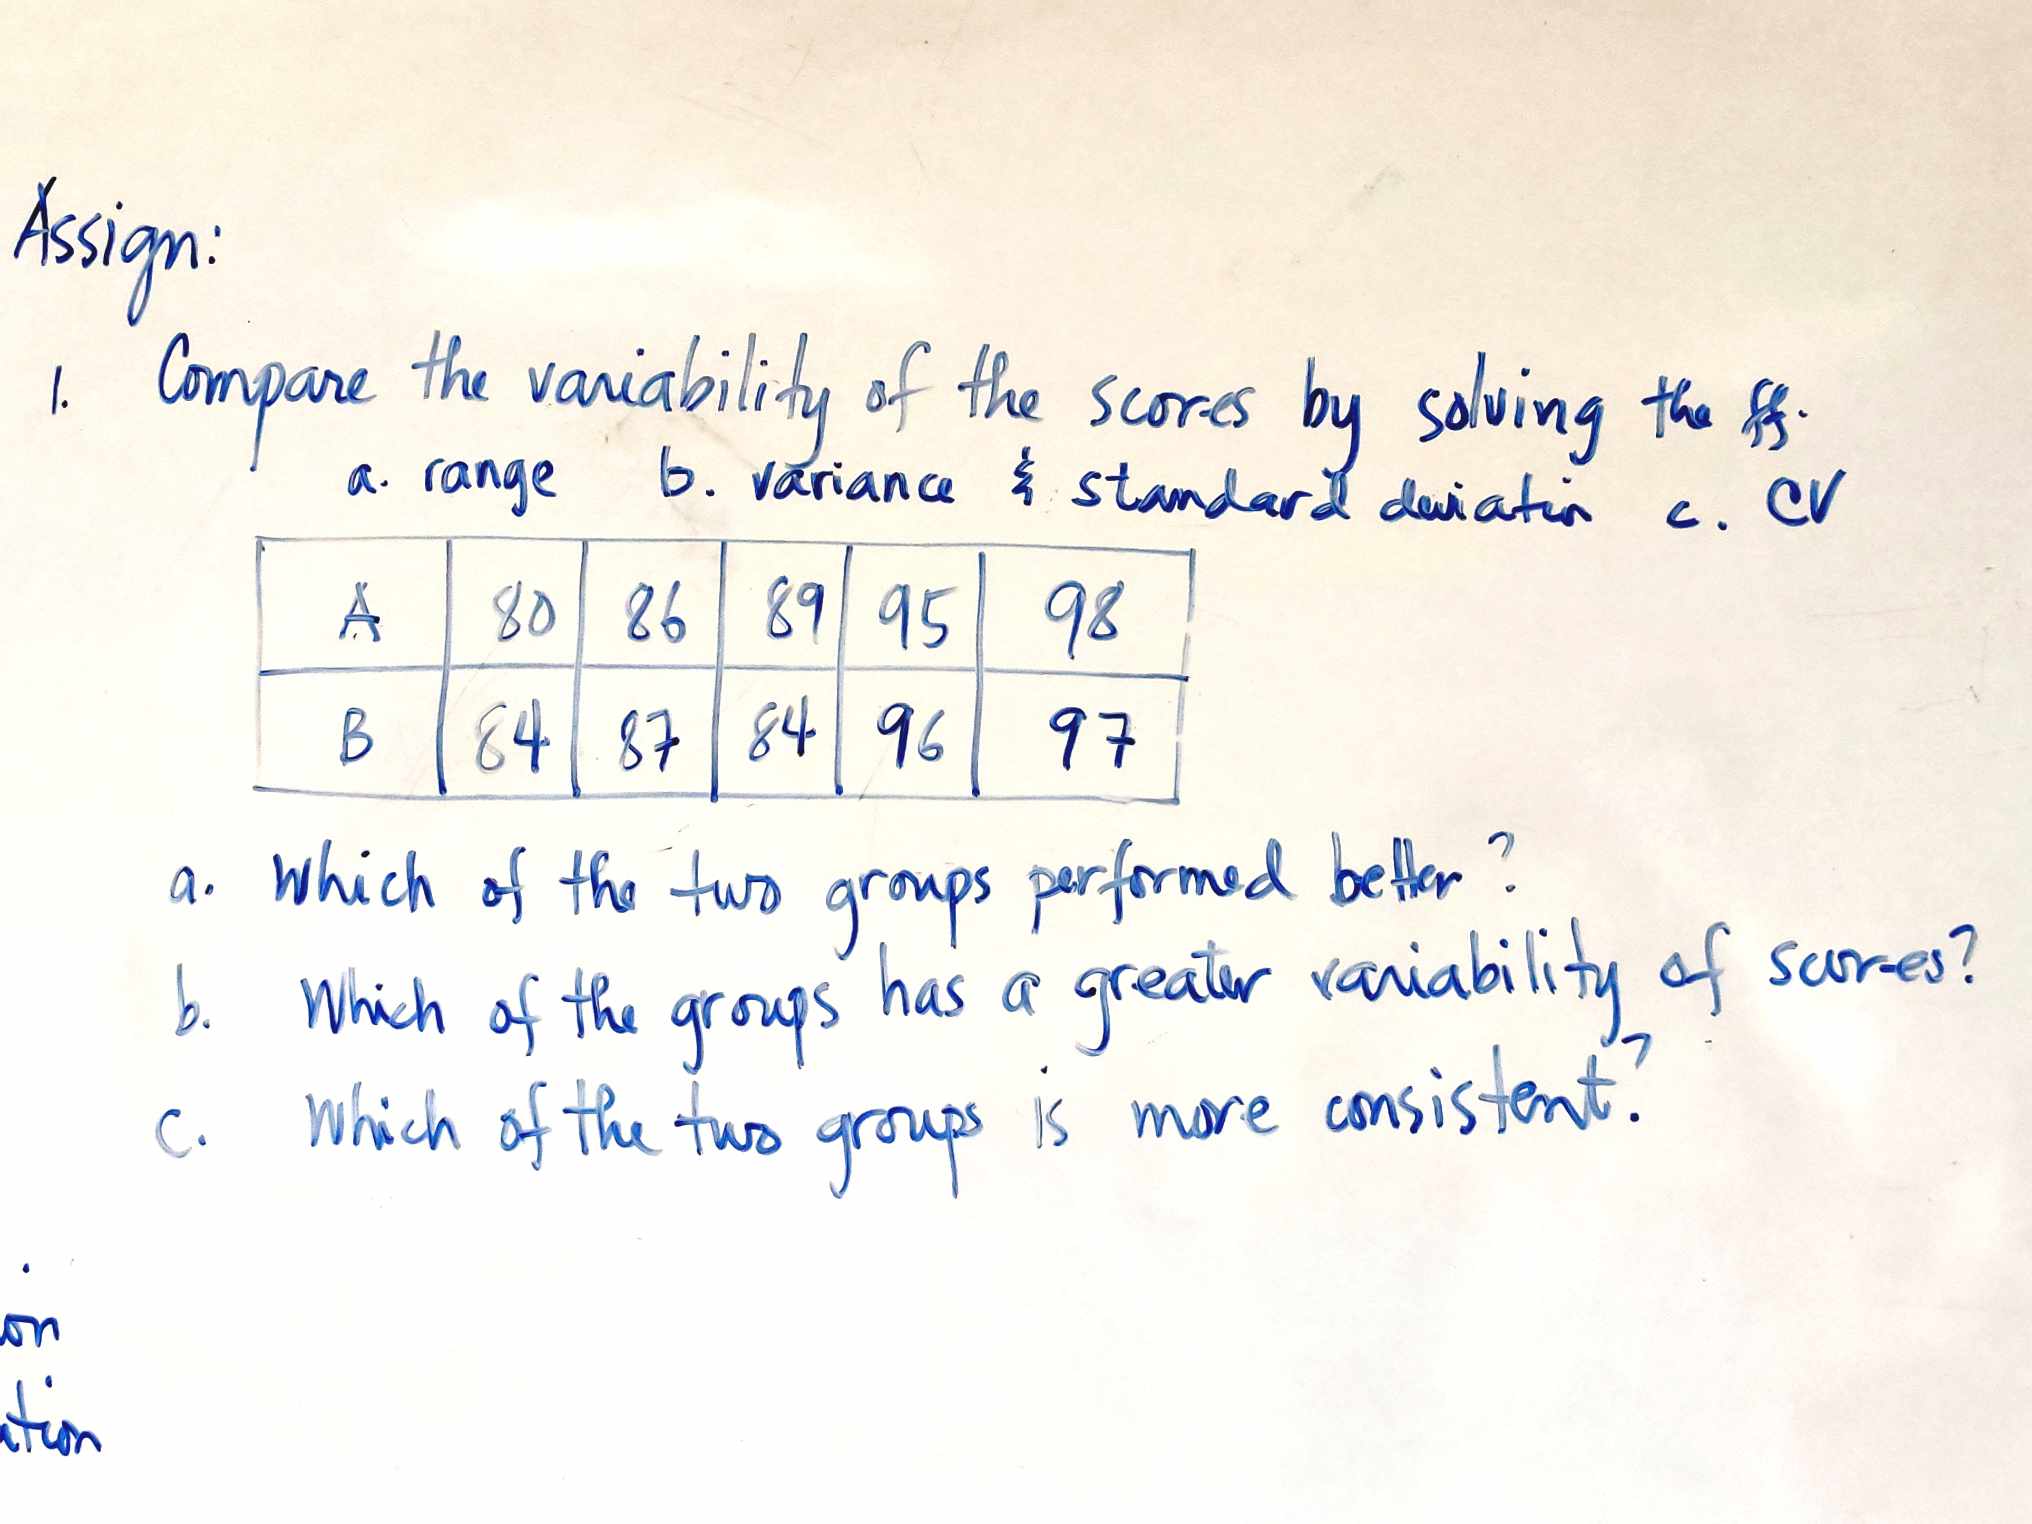 Assign:
1. Compare the variability of the scores by solving the ff.
a. range b. variance & standard deviation c. CV
A 80 86 89 95 98
B 84 87 84 96 97
a. Which of the two groups performed better?
b. Which of the groups has a greater variability of scores?
c. Which of the two groups is more consistent?
on
ation